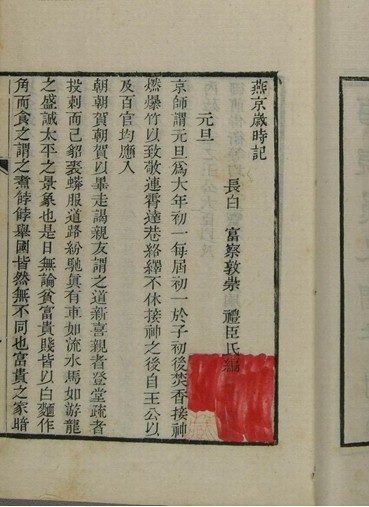 燕京歲時記
長白 富察敦崇 禮臣氏編
元旦
京師謂元旦爲大年初一每屆初一於子初後焚香接神
燃爆竹以致敬連霄達巷絡繹不休接神之後自王公以
及百官均應入
朝朝賀朝賀以畢走謁親友謂之道新喜親者登堂疏者
投刺而已貂裘蟒服道路紛馳眞有車如流水馬如游龍
之盛誠太平之景象也是日無論貧富貴賤皆以白麵作
角而食之謂之煮餑餑舉國皆然無不同也富貴之家暗